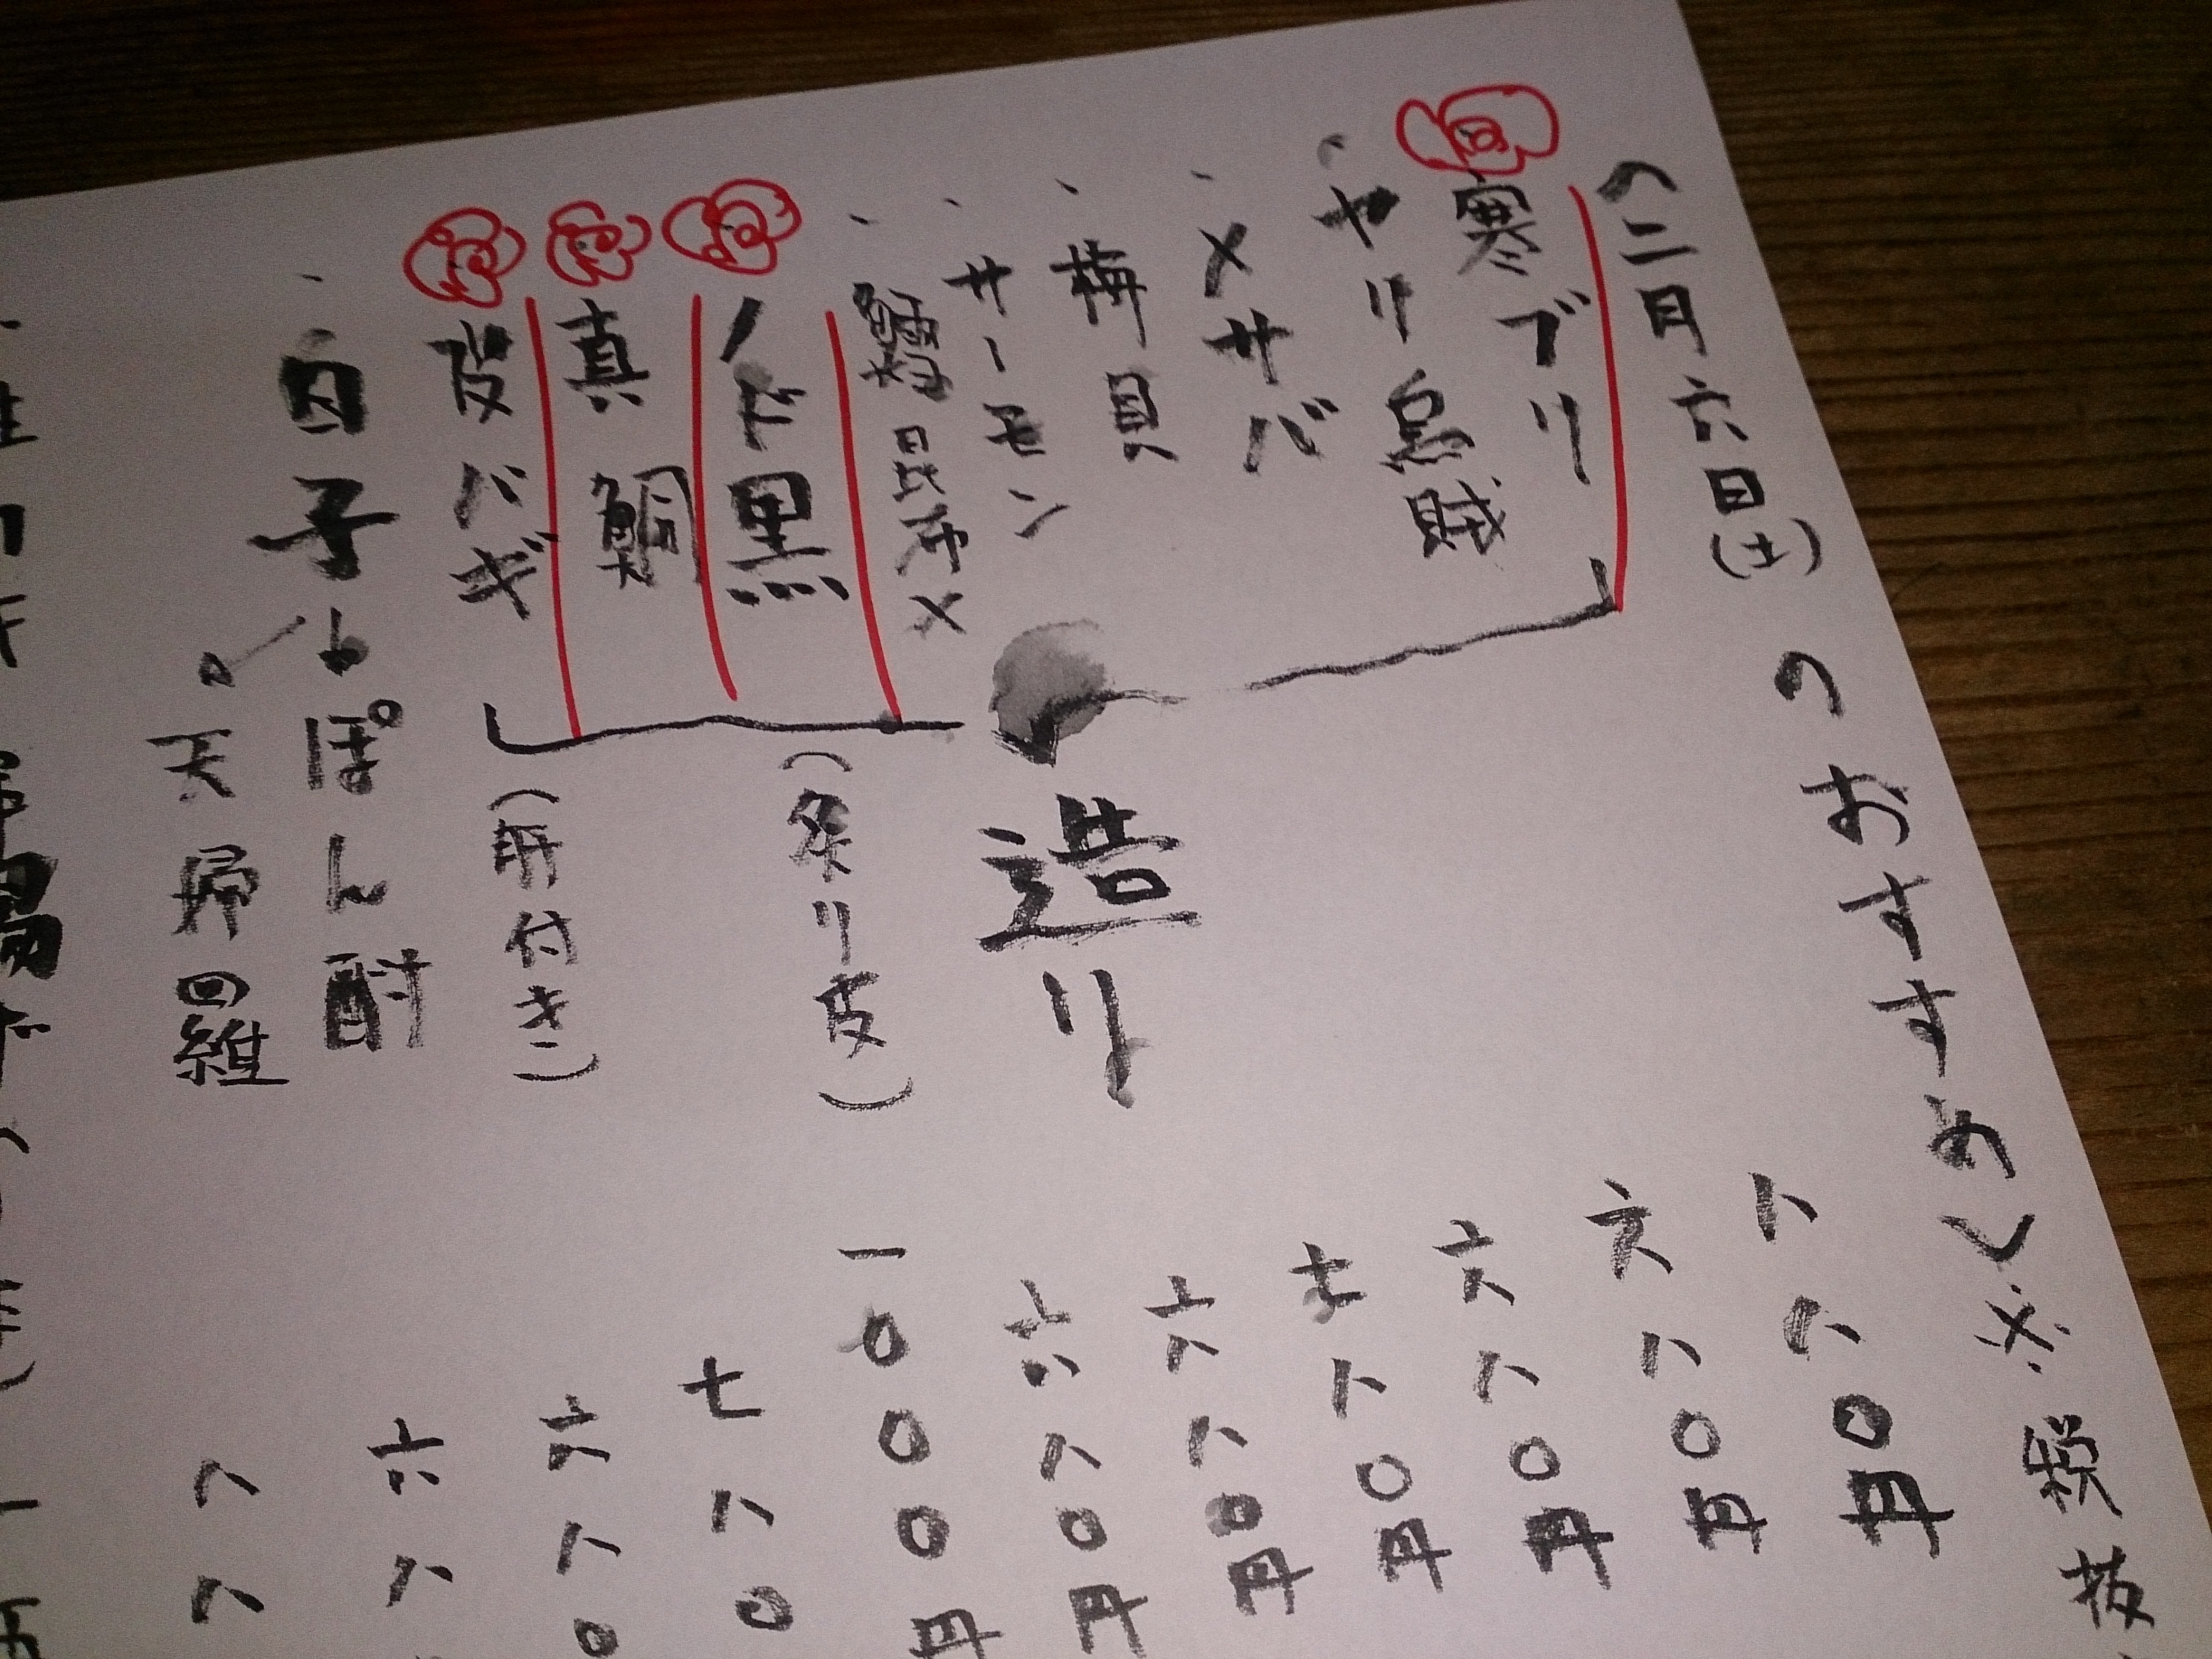 〈二月六日(土) 〈おすすめ〉※税抜
寒ブリ 八八〇円
ヤリ烏賊 六八〇円
〆サバ 六八〇円
梅貝 七八〇円
サーモン 六八〇円
造り
昆布〆 六八〇円
ノド黒 (炙り皮) 一〇〇〇円
真鯛 七八〇
皮ハギ (肝付き) 六八〇
白子 ぽん酢 六八
天婦羅 八八